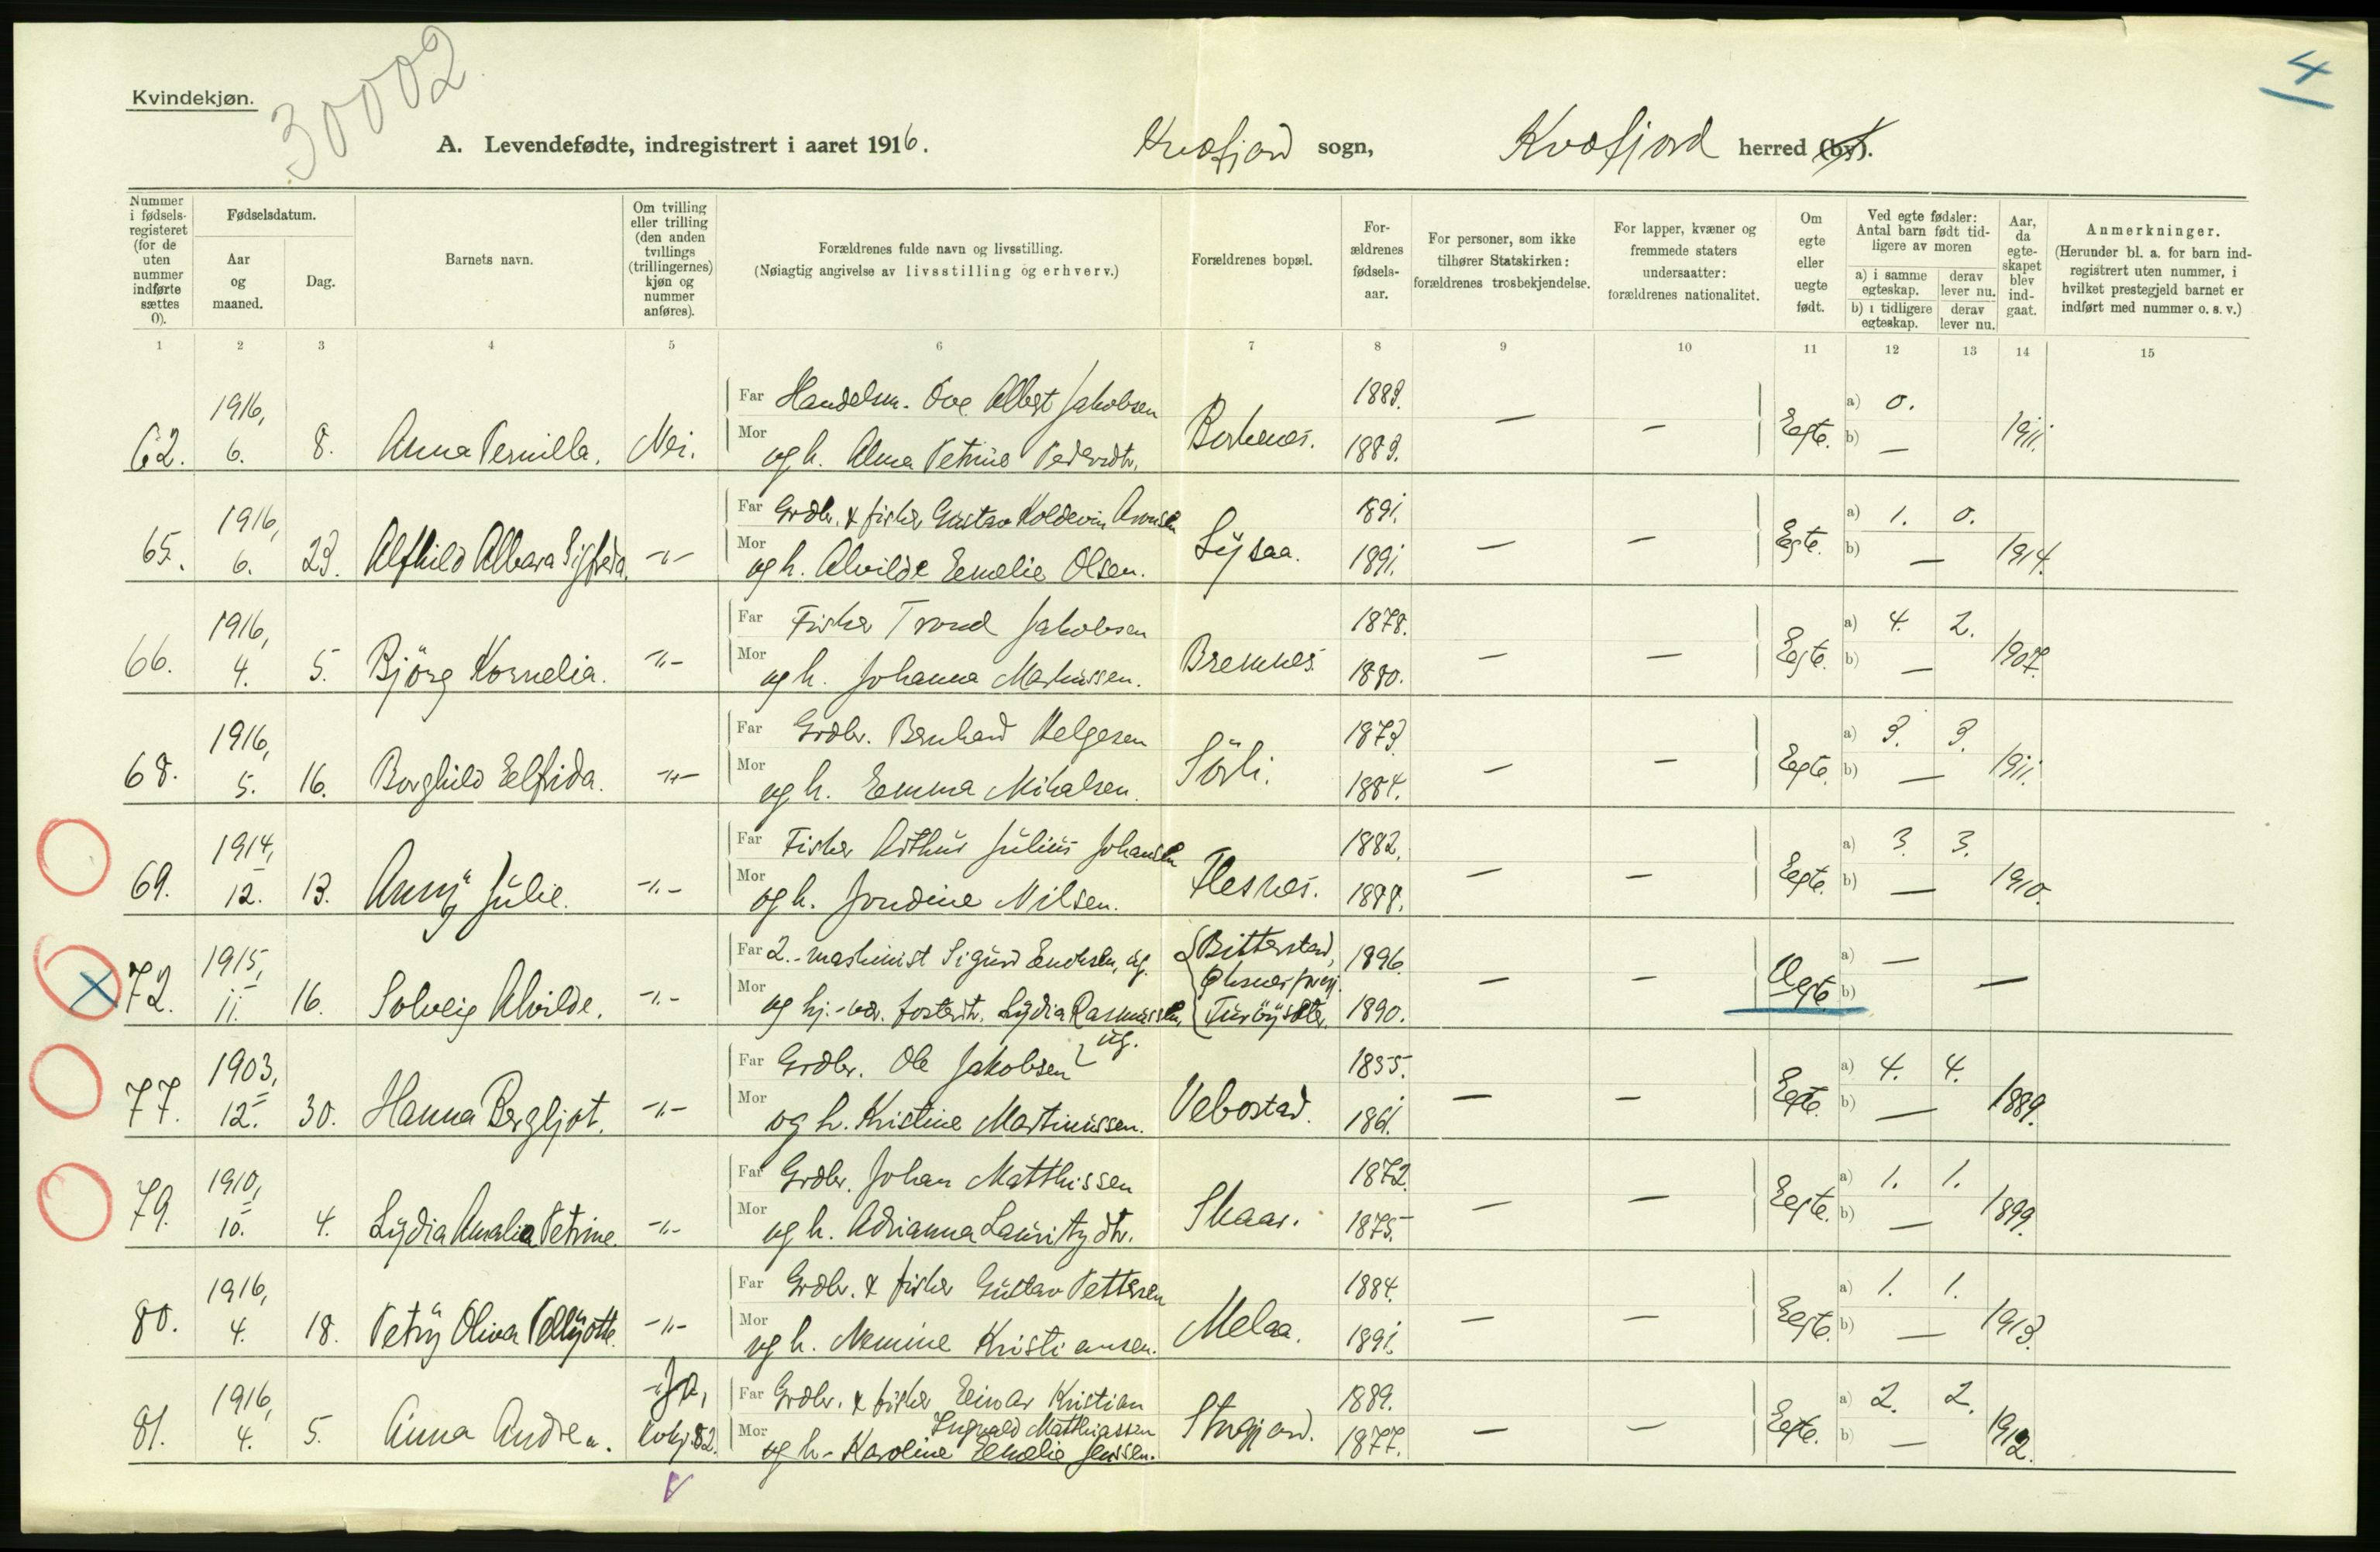 4
30002
Kvindekjøn.
A. Levendefødte, indregistrert i aaret 1916. Kvæfjord sogn, Kvæfjord herred (by).
Nummer i fødsels-registeret (for de uten nummer indførte sættes 0).
Fødselsdatum.
Aar og maaned.
Dag.
Barnets navn.
Om tvilling eller trilling (den anden tvillings (trillingernes) kjøn og nummer anføres).
Forældrenes fulde navn og livsstilling.
(Nøiagtig angivelse av livsstilling og erhverv.)
Forældrenes bopæl.
For-ældrenes fødsels-aar.
For personer, som ikke tilhører Statskirken: forældrenes trosbekjendelse.
For lapper, kvæner og fremmede staters undersaatter: forældrenes nationalitet.
Om egte eller uegte født.
Ved egte fødsler: Antal barn født tid-ligere av moren
a) i samme egteskap.
derav lever nu.
b) i tidligere egteskap.
derav lever nu.
Aar, da egte-skapet blev ind-gaat.
Anmerkninger.
(Herunder bl. a. for barn ind-registrert uten nummer, i hvilket prestegjeld barnet er indført med nummer o. s. v.)
1 2 3 4 5 6 7 8 9 10 11 12 13 14 15
1916, Far Handelsm. Ove Albert Jakobsen 1889. a) 0.
62. 6. 8. Anna Pernilla. Nei. Mor og h. Alma Petrine Pedersdtr. Borkenes. 1889. — — Egte. b) — 1911.
1916, Far Grdbr. & fisker Gustav Koldevin Aronsen 1891. a) 1. 0.
65. 6. 23. Alfhild Albara Sigfrida. -"- Mor og h. Alvilde Emelie Olsen. Lysaa. 1891. — — Egte. b) — 1914.
1916, Far Fisker Trond Jakobsen 1878. a) 4. 2.
66. 4. 5. Björg Kornelia. -"- Mor og h. Johanna Markussen. Bremnes. 1880. — — Egte. b) — 1907.
1916, Far Grdbr. Bernhard Helgesen 1873. a) 3. 3.
68. 5. 16. Borghild Elfrida. -"- Mor og h. Emma Mikalsen. Sörli. 1884. — — Egte. b) — 1911.
1914, Far Fisker Arthur Julius Johansen 1882. a) 3. 3.
69. 12. 13. Anny Julie. -"- Mor og h. Jondine Nilsen. Flesnes. 1888. — — Egte. b) — 1910.
1915, Far 2.-maskinist Sigurd Enoksen, ug. Bitterstad, 1896. a) —
72. 11. 16. Solveig Alvilde. -"- Mor og hj.-vær. fosterdt. Lydia Rasmussen, ug. Øksnes prgj. 1890. — — Uegte b) —
1903, Far Grdbr. Ole Jakobsen 1855. a) 4. 4.
77. 12. 30. Hanna Bergljot. -"- Mor og h. Kristine Martinussen. Vebostad. 1861. — — Egte. b) — 1889.
1910, Far Grdbr. Johan Matthissen 1872. a) 1. 1.
79. 10. 4. Lydia Amalia Petrine. -"- Mor og h. Adrianna Lauritzdtr. Skaar. 1875. — — Egte. b) — 1899.
1916, Far Grdbr. & fisker Gustav Pettersen 1884. a) 1. 1.
80. 4. 18. Petry Oliva -"- Mor og h. Nemine Kristiansen. Melaa. 1891. — — Egte. b) — 1913.
1916, Ja, Far Grdbr. & fisker Einar Kristian 1889. a) 2. 2.
Ingvald Matthiassen
81. 4. 5. Anna Andrea. kvkj. 82. Mor og h. Karoline Emelie Jenssen. Storjord. 1877. — — Egte. b) — 1912.